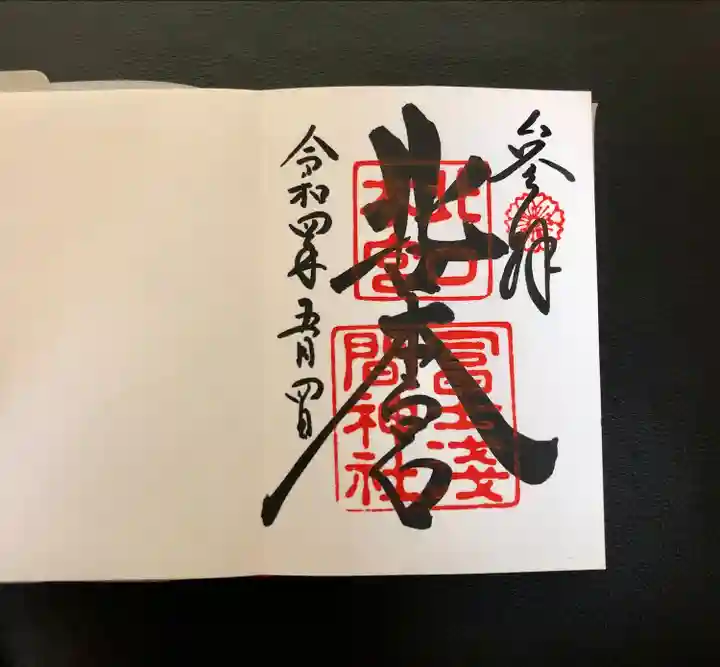 參拝
北口本宮
北口
本宮
冨士淺
間神社
令和四年五月四日